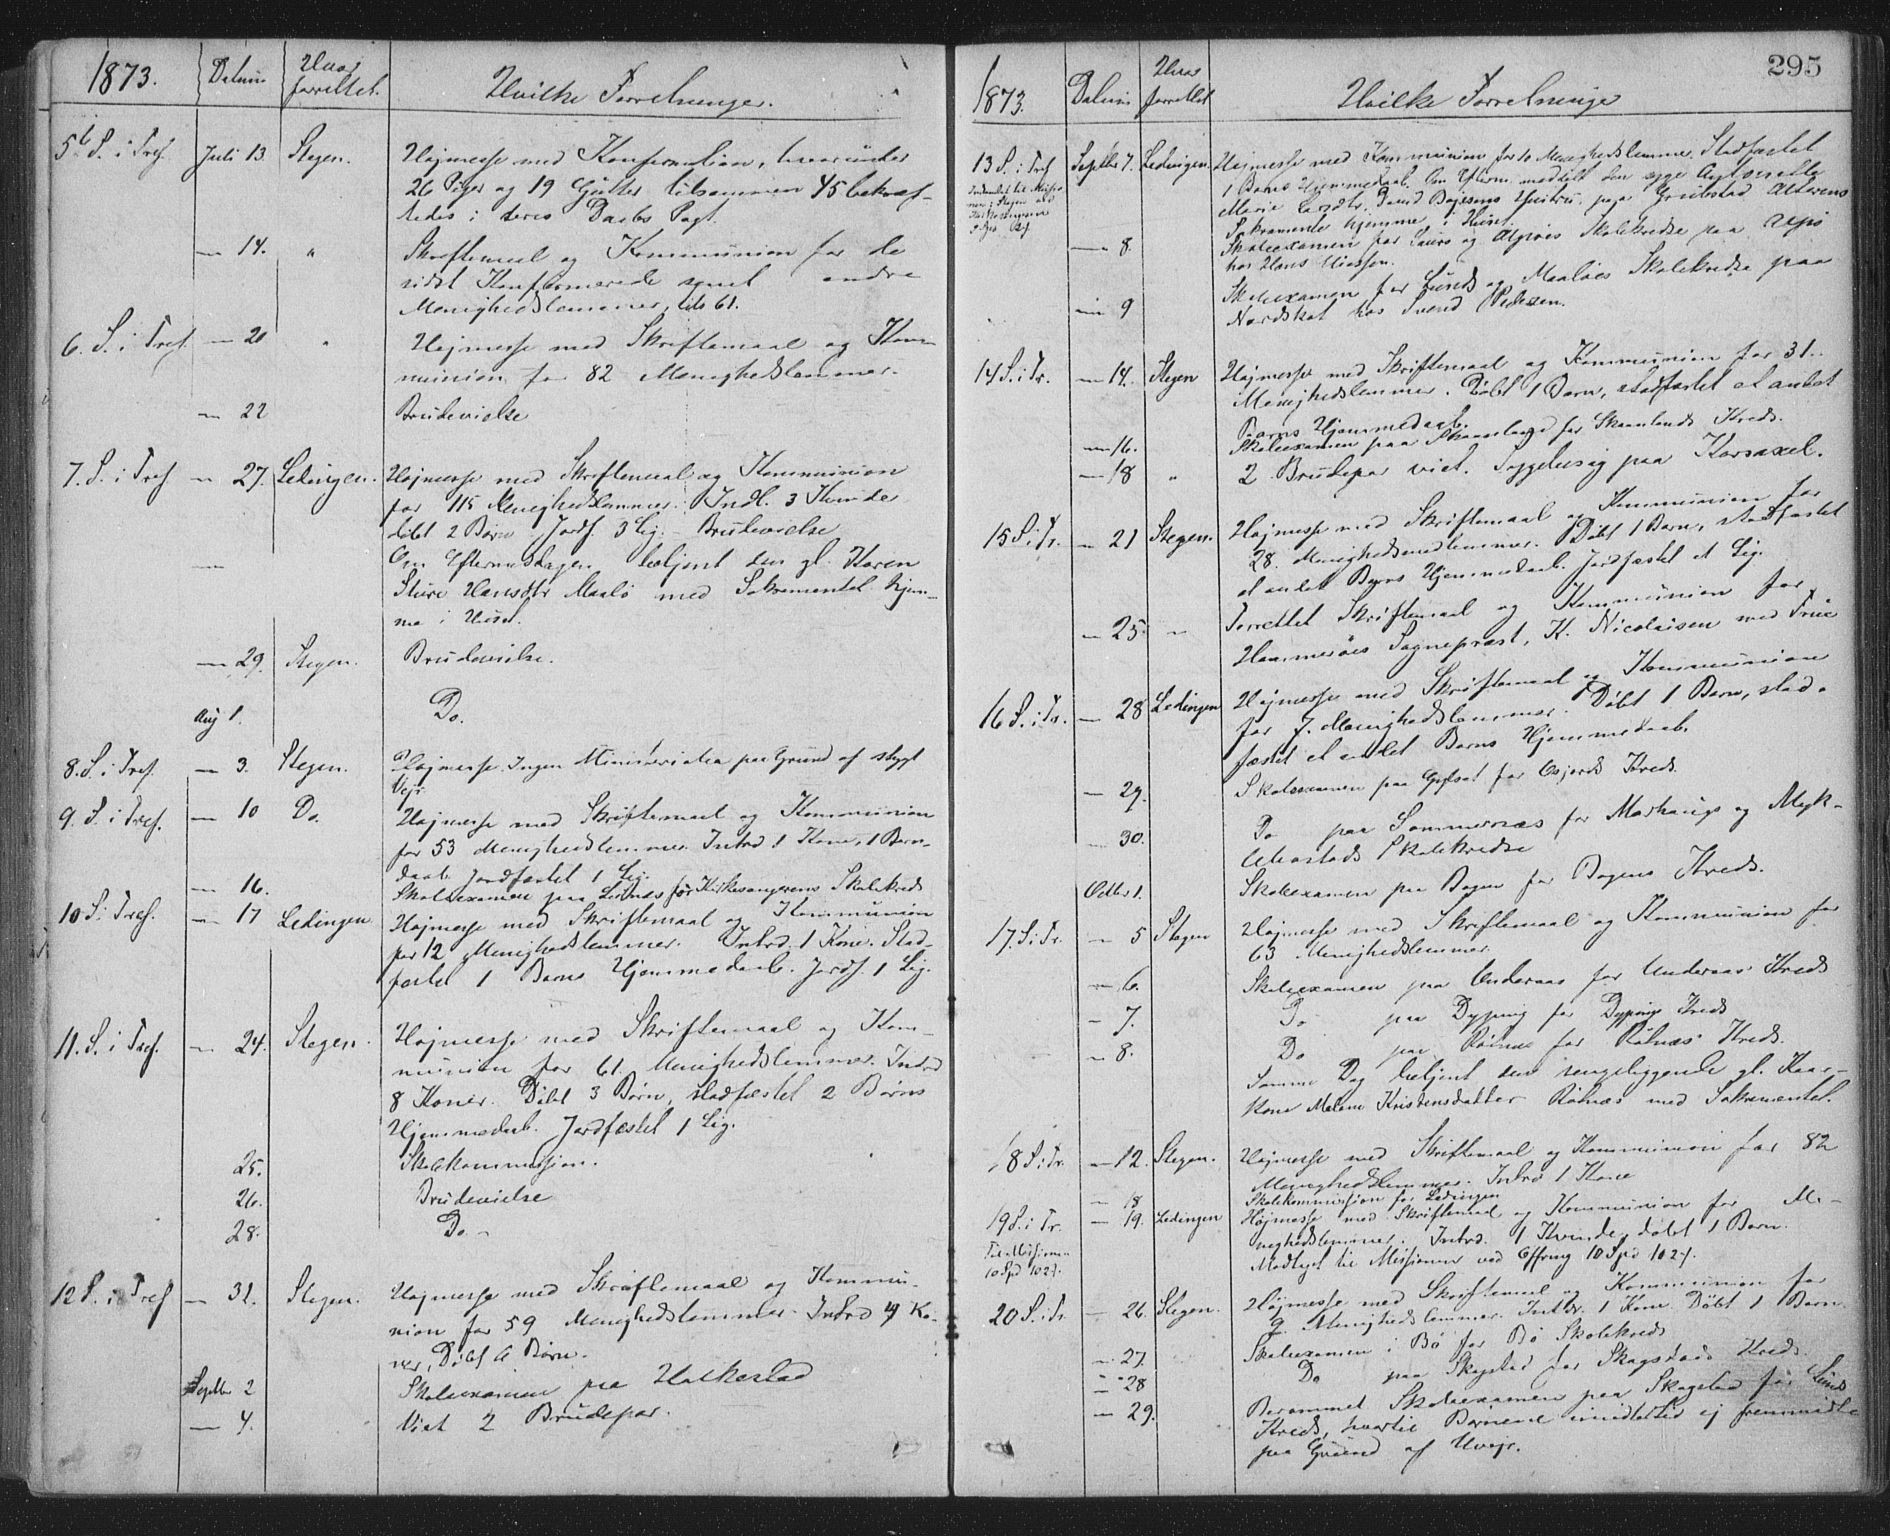 1873. Datum Hvor forrettet. Hvilke Forretninger.
5te S. i Tref. Juli 13. Stegen. Højmesse med Konfirmation, hvorunder
26 Piger og 19 Gutter tilsammen 45 bekræf-
tedes i deres Daabs Pagt.
— 14. " Skriftemaal og Kommunion for de
sidst Konfirmerede samt andre
Menighedslemmer, tils 61.
6. S. i Tref. — 20 " Højmesse med Skriftemaal og Kom-
munion for 82 Menighedslemmer.
— 22 Brudevielse
7. S. i Tref — 27. Lødingen. Højmesse med Skriftemaal og Kommunion
for 115 Menighedslemmer. Indl. 3 Kvinder
døbt 2 Børn Jordf. 3 Lig. – Brudevielse
— Om Eftermiddagen betjent den gl. Karen
Sture Hansdtr Maalø med Sakramentet hjem-
me i Huset.
— 29. Stegen. Brudevielse.
Aug 1. Do.
8. S. i Tref. — 3. Stegen. Højmesse. Ingen Ministerialia paa Grund af stygt
Vejr.
9. S. i Tref. — 10 Do. Højmesse med Skriftemaal og Kommunion
for 53 Menighedslemmer. Introd 1 Kone, 1 Barn-
daab Jordfæstet 1 Lig.
— 16. Skoleexamen paa Leines for Kirkesangerens Skolekreds
10 S. i Tref. — 17 Lødingen. Højmesse med Skriftemaal og Kommunion
for 12 Menighedslemmer. Introd. 1 Kone. Stad-
fæstet 1 Barns Hjemmedaab. Jordf. 1 Lig.
11. S. i Tref. — 24. Stegen. Højmesse med Skriftemaal og Kom-
munion for 61 Menighedslemmer. Introd
8 Koner. Døbt 3 Børn, stadfæstet 2 Børns
Hjemmedaab. Jordfæstet 1 Lig.
25. Skolekommission.
26. Brudevielse
28. Do. -
12 S. i Tref — 31. Stegen. Højmesse med Skriftemaal og Kommu-
nion for 59 Menighedslemmer. Introd 4 Ko-
ner, Døbt 6 Børn.
Septbr 2 Skoleexamen paa Holkestad
— 4. Viet 2 Brudepar.
295
1873. Datum Hvor forrettet Hvilke Forretninge
13 S. i Tref Septbr 7. Lødingen. Højmesse med Kommunion for 10 Menighedslemmer. Stadfæstet
1 Barns Hjemmedaab. Om Efterm. meddelt den syge
Marie Larsdtr. David Bajesens Hustru, paa Grøtstad Alterens
Sakramente hjemme i Huset.
— 8. Skoleexamen for og Skolekreds paa
hos Hans
— 9 Skoleexamen for Lunds og Maaløes Skolekredse paa
Nordskot hos Svend Pedersen.
14 S. i Tr. — 14. Stegen Højmesse med Skriftemaal og Kommunion for 31
Menighedslemmer. Døbt 1 Barn, stadfæstet et andet
Barns Hjemmedaab.
— 16. Skoleexamen paa for Skaanlands Kreds.
— 18 " 2 Brudepar viet. Sygebesøg paa Korsaxel.
15 S. i Tr. — 21 Stegen. Højmesse med Skriftemaal og Kommunion for
28. Menighedsmedlemmer. Døbt 1 Barn, stadfæstet
et andet Barns Hjemmedaab. Jordfæstet et Lig.
— 25. " Forrettet Skriftemaal og Kommunion for
Hammerøes Sognepræst, K. Nicolaisen med Frue
16 S. i Tr. — 28 Lødingen Højmesse med Skriftemaal og Kommunion
for 7. Menighedslemmer. Døbt 1 Barn, stad-
fæstet et andet Barns Hjemmedaab.
— 29. Skoleexamen paa for Kreds.
— 30. Do paa Sommernæs for Marhaugs og Myk-
lebostads Skolekredse
Octbr 1. Skoleexamen paa Bogen for Bogens Kreds.
17. S. i Tr. — 5 Stegen Højmesse med Skriftemaal og Kommunion for
63 Menighedslemmer.
— 6. Skoleexamen paa Underaas for Underaas Kreds
— 7. Do paa Dyping for Dypings Kreds
— 8. Do paa Rølnæs for Rølnæs Kreds.
Samme Dag betjent den sengeliggende gl. Kaar-
kone Malene Kristensdatter Rølnæs med Sakramentet.
18 S. i Tr. — 12. Stegen. Højmesse med Skriftemaal og Kommunion for 82
Menighedslemmer. Introd 1 Kone
— 18 Skolekommission for Lødingen
19 S. i Tr. — 19. Lødingen Højmesse med Skriftemaal og Kommunion for Me-
nighedslemmer. Introd. 1 Kvinde, døbt 1 Barn.
Til Missionen
10 Spd 102 β. Modtaget til Missionen ved Offring 10 Spd 102 β.
20 S. i Tr — 26. Stegen. Højmesse med Skriftemaal og Kommunion for
9. Menighedslemmer. Introd. 1 Kone Døbt 1 Barn
— 27. Skoleexamen i Bø for Bø Skolekreds
— 28 Do paa Skagstad for Skagstads Kreds.
— 29. Berammet Skoleexamen paa Skagstad for Lunds
Kreds, hvortil Børnene imidlertid ej fremmødte
paa Grund af Uvejr.